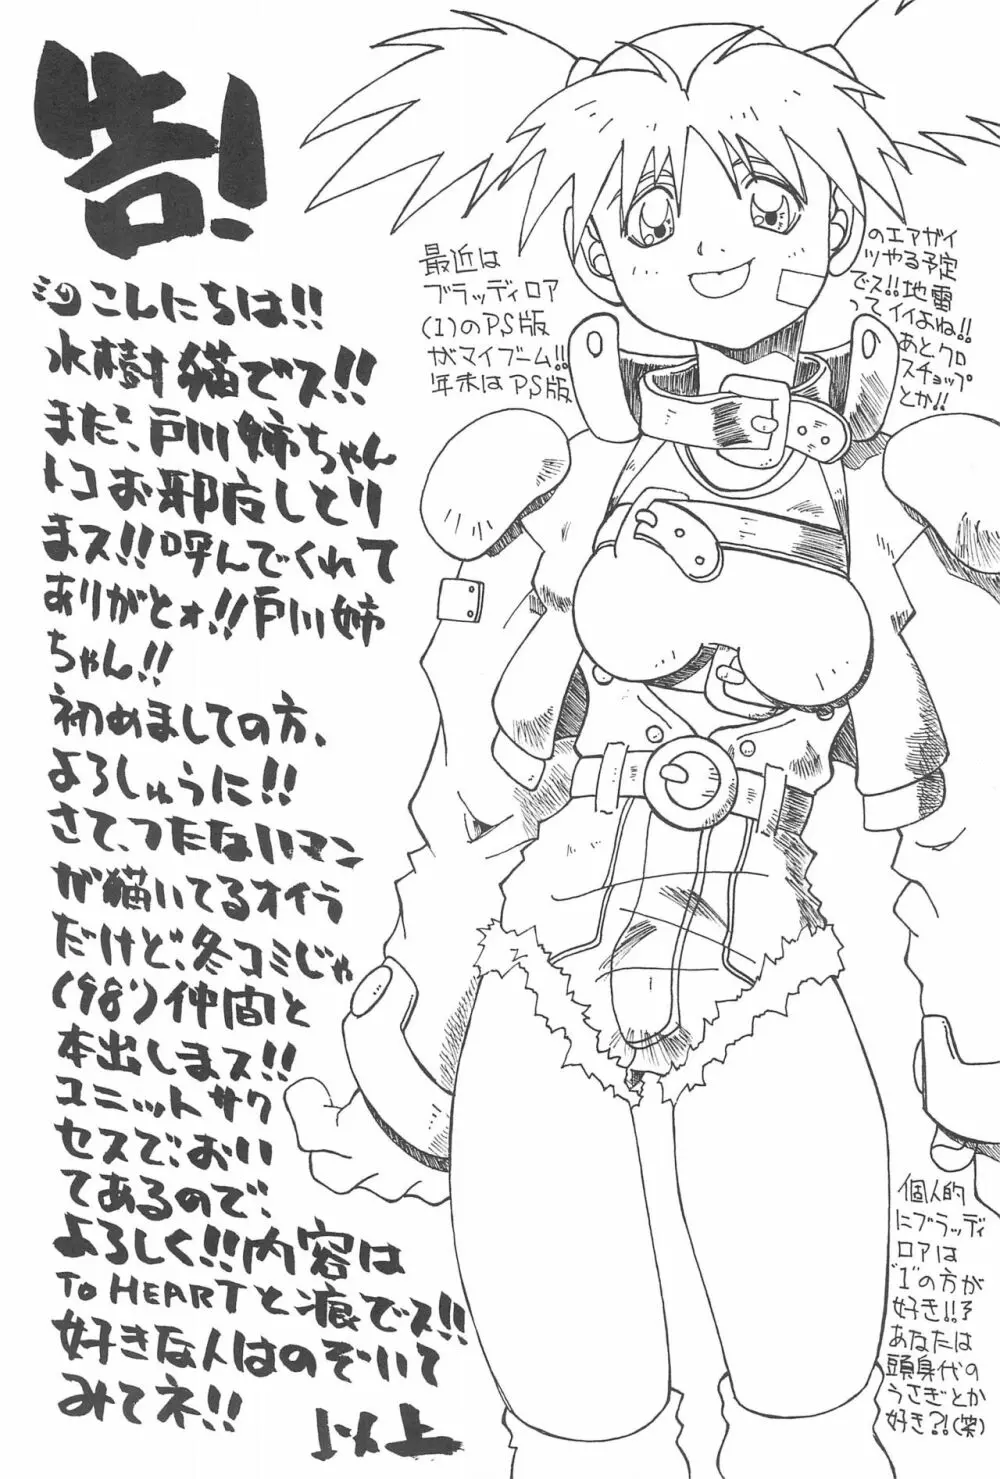 告!
こんにちは!!
水樹猫でス!!
また、戸川姉ちゃん
トコお邪广しとり
まス!!呼んでくれて
ありがとォ!!戸川姉
ちゃん!!
初めましての方、
よろしゅうに!!
さて、つたないマン
が猫いてるオイラ
だけど、冬コミじゃ
('98')仲間と
本出しまス!!
ユニットサク
セスで、おい
てあるので、
よろしく!!内容は
TO HEARTと痕でス!!
好きな人はのぞいて
みてネ!!
以上
最近は
ブラッディロア
(1)のPS版
がマイブーム!!
年末はPS版
のエアガイ
ツやる予定
でス!!地雷
ってイイよね!!
あとクロ
スチョップ
とか!!
個人的
にブラッディ
ロアは
"1"の方が
好き!!
あなたは
頭身代の
うさぎとか
好き?!(笑)